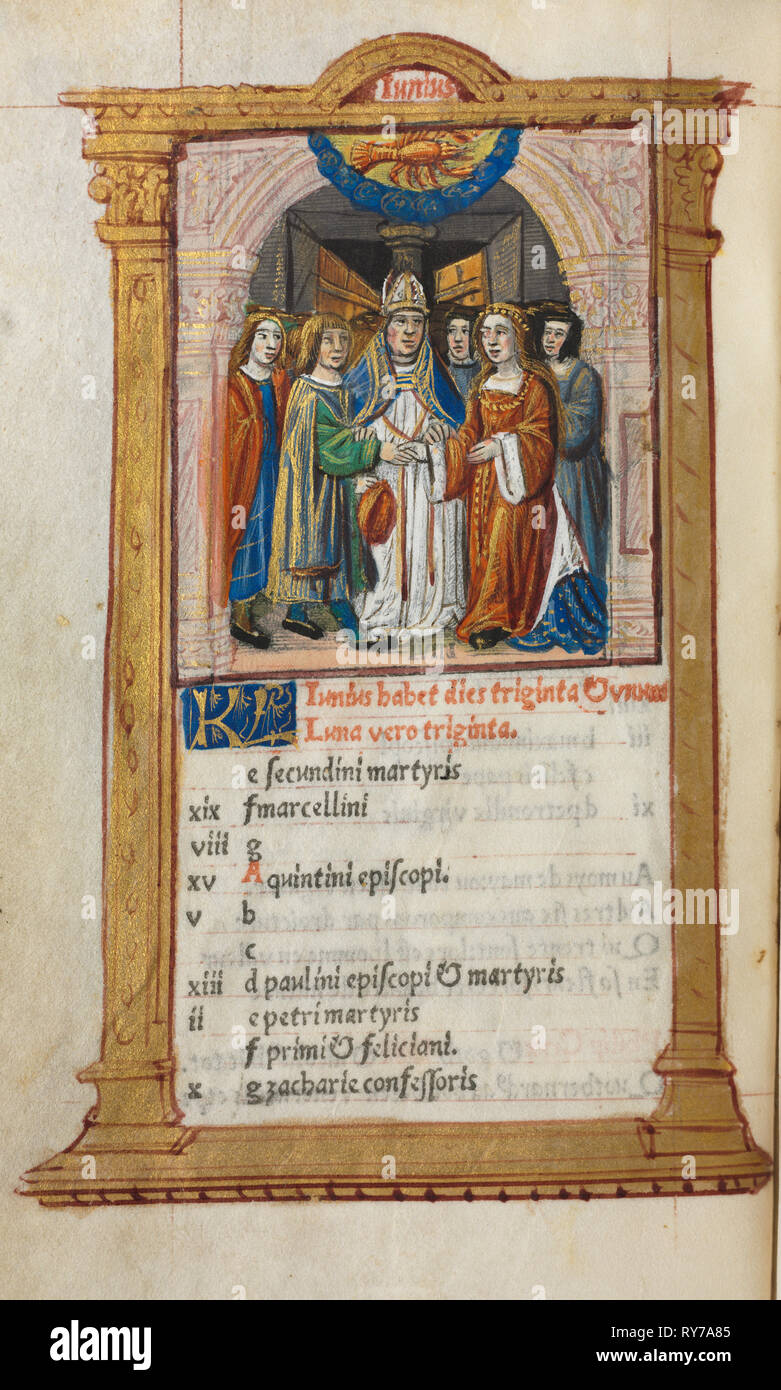 Iunius
KL Iunius habet dies triginta &
Luna vero triginta.
e ſecundini martyris
xix f marcellini
viii g
xv A quintini epiſcopi.
v b
c
xiii d paulini epiſcopi & martyris
ii e petri martyris
f primi & feliciani.
x g zacharie confeſſoris
alamy
Image ID: RY7A85
www.alamy.com